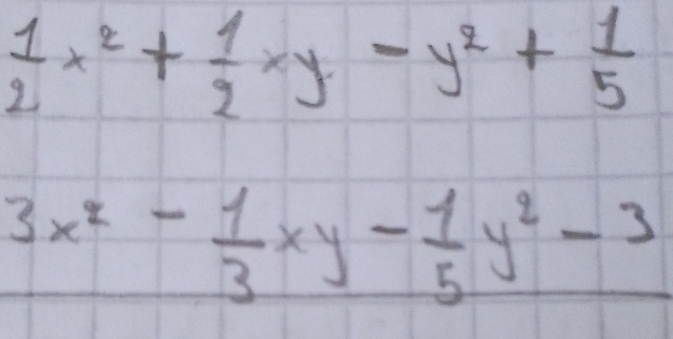 1/2 x² + 1/2 xy - y² + 1/5
3x² - 1/3 xy - 1/5 y² - 3